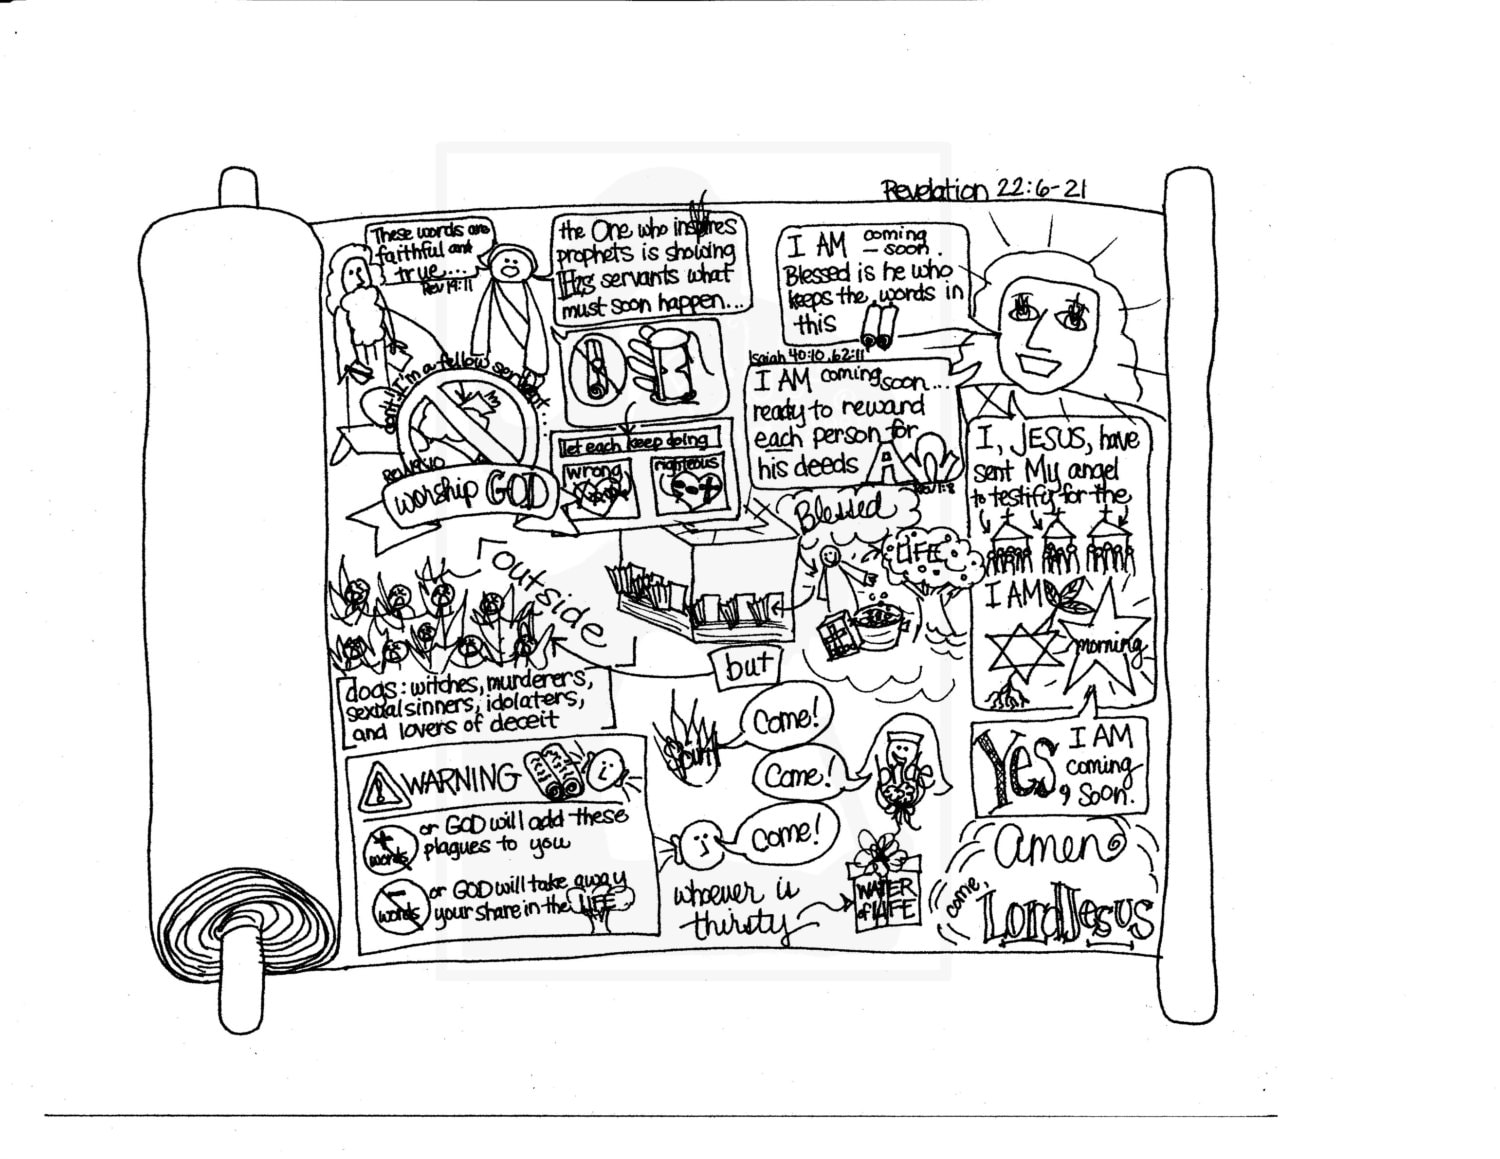 Revelation 22:6-21
These words are
faithful and
true...
Rev 19:11
the One who inspires
prophets is showing
His servants what
must soon happen...
I AM coming
soon.
Blessed is he who
keeps the words in
this
Don't! I'm a fellow servant...
worship GOD
let each keep doing
wrong
righteous
Isaiah 40:10, 62:11
I AM coming soon...
ready to reward
each person for
his deeds
A
Rev 1:8
I, JESUS, have
sent My angel
to testify for the
I AM
morning
Yes, I AM
coming
soon.
amen
come,
Lord Jesus
Blessed
LIFE
outside
dogs: witches, murderers,
sexual sinners, idolaters,
and lovers of deceit
but
Spirit
Come!
Come!
bride
Come!
whoever is
thirsty
WATER
of LIFE
! WARNING
+
words
or GOD will add these
plagues to you
-
words
or GOD will take away
your share in the LIFE